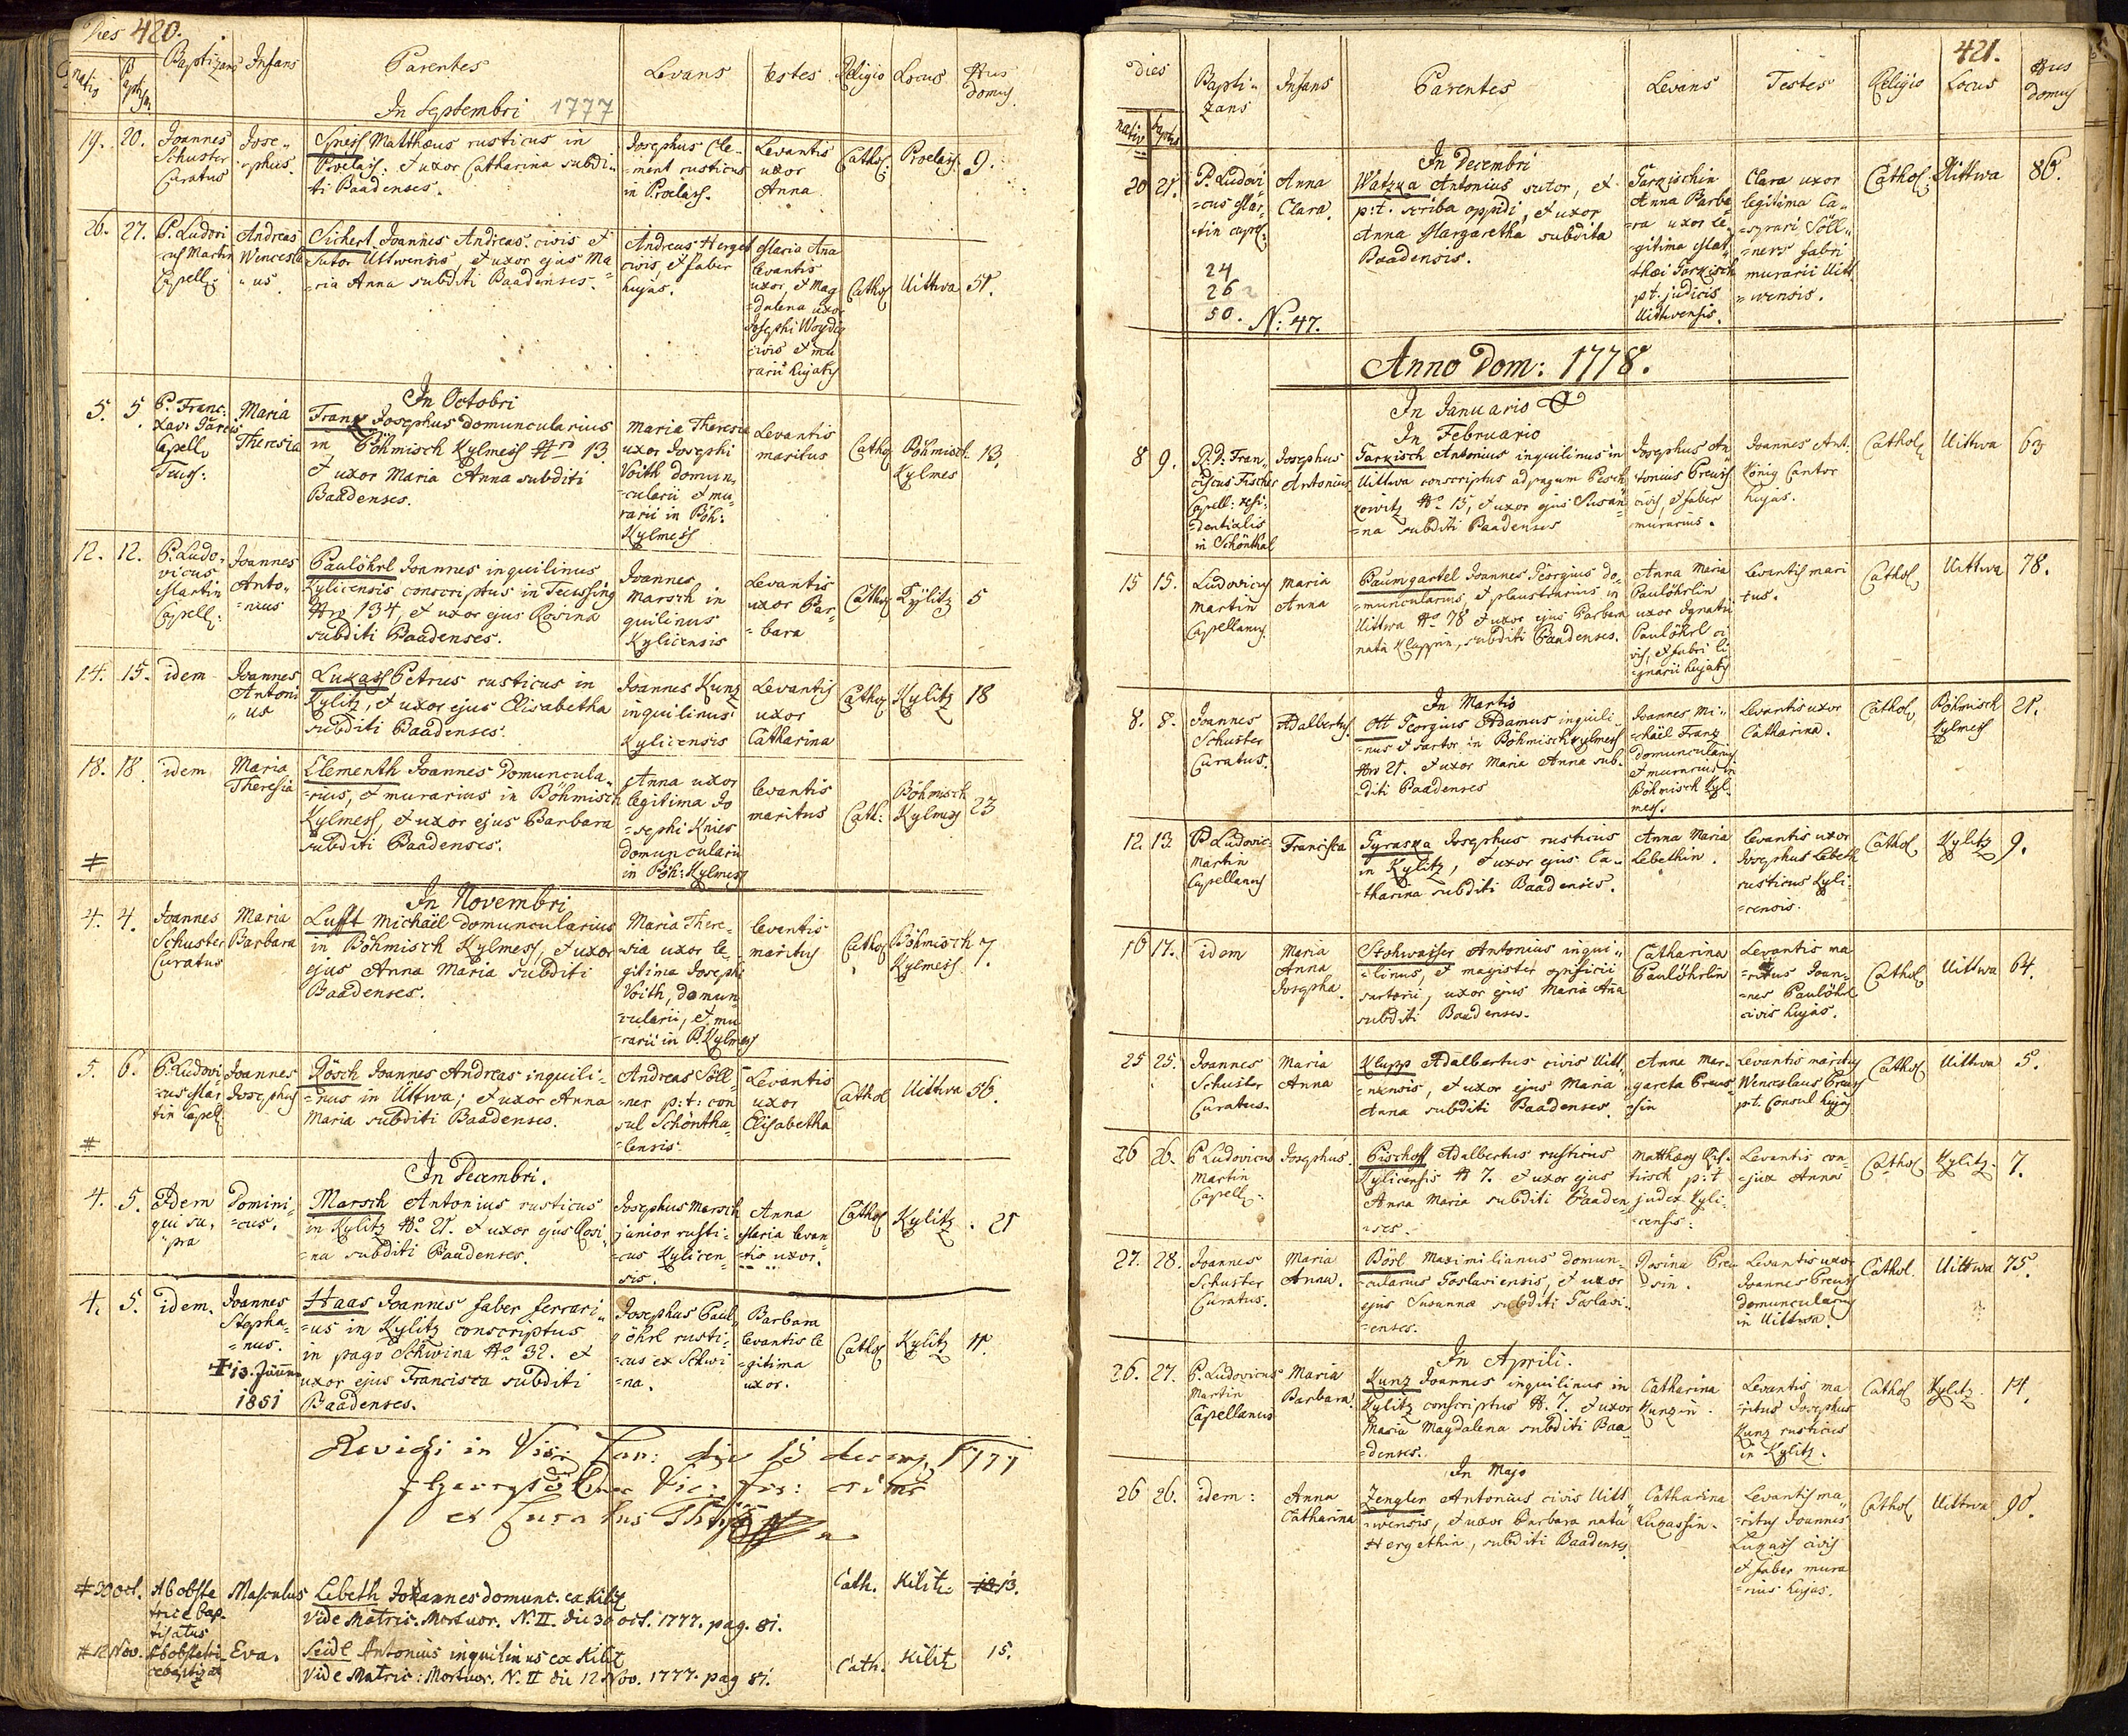 Dies 420.
natio Baptizans Infans Parentes Levans testes Religio Locus Nrus domus
In Septembri 1777
19. 20. Joannes Schuster Curatus
Jose„ =phus.
Spiess Matthæus rusticus in
Proelass: et uxor Catharina subdi„
ti Baadenses.
Josephus Cle-
=ment rusticus
in Proelass.
Levantis
uxor
Anna
Cathol: Proelass: 9.
26. 27. P. Ludovi
=cus Martin
Capell:
Andreas
Wencesla
„us
Sichert Joannes Andreas civis et
Sutor Uttwensis, et uxor ejus Ma=
=ria Anna subditi Baadenses.
Andreas Herget
civis et faber
hujas.
Maria Ana
levantis
uxor, et Mag
=dalena uxor
Josephi Woydig
civis et mu
rarii hujatis
Cathol Uittwa 51.
In Octobri
5. 5. P. Franc:
Xav:
Capell
Teus:
Maria
Theresia
Franz Josephus domuncularius
in Böhmisch Kylmess Nro 13
et uxor Maria Anna subditi
Baadenses.
Maria Theresia
uxor Josephi
Voith domun„
=cularii et mu„
rarii in Böh:
Kylmess
Levantis
maritus
Cathol Böhmisch 13.
Kylmes
12. 12. P. Ludo„
vicus
Martin
Capell:
Joannes
Anto„
=nius
Paulöhrl Joannes inquilinus
Kylicensis conscriptus in Teussing
Nro 134, et uxor ejus Rosina
subditi Baadenses.
Joannes
Marsch in
quilinus
Kylicensis
Levantis
uxor Bar-
=bara
Cathol Kylitz 5
14. 15. idem
Joannes
Antoni
„us
Lukass Petrus rusticus in
Kylitz, et uxor ejus Elisabetha
subditi Baadenses.
Joannes Kunz
inquilinus
Kylicensis
Levantis
uxor
Catharina
Cathol Kylitz 18
18. 18. idem
Maria
Theresia
Clementh Joannes Domuncula„
=rius, et murarius in Böhmisch
Kylmess, et uxor ejus Barbara
subditi Baadenses.
Anna uxor
legitima Jo
=sephi Knies
domuncularii
in Böh: Kylmess
levantis
maritus
Cath: Böhmisch
Kylmess 23
#
In Novembri
4. 4. Joannes
Schuster
Curatus
Maria
Barbara
Lufft Michaël Domuncularius
in Böhmisch Kylmess, et uxor
ejus Anna Maria subditi
Baadenses.
Maria There=
=sia uxor le-
gitima Josephi
Voith, domun„
=cularii, et mu
=rarii in B. Kylmess
levantis
maritus
Cathol Böhmisch 7.
Kylmess
5. 6. P. Ludovi-
=cus Mar„
tin Capell
Joannes
Josephus
Rösch Joannes Andreas inquili„
=nus in Uttwa; et uxor Anna
Maria subditi Baadenses.
Andreas Söll=
=ner p:t: con
sul Schöntha„
=lensis.
Levantis
uxor
Elisabetha
Cathol Uittwa 56.
#
In Decembri.
4. 5. Idem
qui su„
„pra
Domini„
=cus.
Marsch Antonius rusticus
in Kylitz No. 21. et uxor ejus Rosi„
=na subditi Baadenses.
Josephus Marsch
junior rusti=
=cus Kylicen
sis.
Anna
Maria levan=
=tis uxor.
Cathol Kylitz . 21
4. 5. idem.
Joannes
Stepha„
=nus.
Haas Joannes faber ferrari„
=us in Kylitz conscriptus
in pago Schwina No. 32. et
uxor ejus Francisca subditi
Baadenses.
Josephus Paul„
öhrl rusti„
=cus ex Schwi
=na.
Barbara
levantis le
=gitima
uxor.
Cathol Kylitz 11.
1851
Revidi in Die 15 1777
#30 oct. Ab obste
trice bap-
tisatus
Masculus
Lebeth Johannes domunc. ex Kilitz
Vide Matric. Mortuor. N. II. die 30 oct. 1777. pag. 81.
Cath. Kilitz 13.
#12 Nov. Ab obstetri
ce baptizat
Eva.
Seidl Antonius inquilinus ex Kilitz
Vide Matric: Mortuor. N. II die 12 Nov. 1777. pag 81.
Cath. Kilitz 15.
421.
dies Bapti„
zans Infans Parentes Levans Testes Religio Locus Nrus
domus
In Decembri
20 21. P. Ludovi
=cus Mar„
=tin capel:
Anna
Clara.
Watzka Antonius sutor, et
p:t. scriba oppidi, et uxor
Anna Margaretha subdita
Baadensis.
Anna Barba
=ra uxor le„
gitima Mat„
thæi
pt. judicis
Uittwensis.
Clara uxor
legitima Ca„
Söll„
=ners fabri
murarii Uitt
=wensis.
Cathol: Uittwa 86.
24
26
50. N: 47.
Anno Dom: 1778.
In Januario
In Februario
8 9. P. Fran„
ciscus Fischer
Capell: resi„
=dentialis
in Schönthal
Josephus
Antonius
Antonius inquilinus in
Uittwa conscriptus ad pagum Pesch
kowitz No. 15, et uxor ejus Susan„
=na subditi Baadenses
Josephus An
tonius Preuss
civis, et faber
murarius.
Joannes Ant.
König Cantor
hujas.
Cathol Uittwa 63
15 15. Ludovicus
Martin
Capellanus
Maria
Anna
Baumgartel Joannes Georgius do„
=muncularius, et plaustrarius in
Uittwa No 78 et uxor ejus Barbara
nata Klappin, subditi Baadenses.
Anna Maria
Paulöhrlin
uxor Ignatii
Paulöhrl ci
vis, et fabri li
gnarii hujatis
Levantis mari
tus.
Cathol Uittwa 78.
In Martio
8. 8. Joannes
Schuster
Curatus.
Adalbertus.
Ott Georgius Adamus inquili„
=nus et sartor in Böhmisch Kylmess
Nro 21. et uxor Maria Anna sub-
diti Baadenses
Joannes Mi„
=chäil Franz
domuncularius
et murarius in
Böhmisch Kyl-
mess.
Levantis uxor
Catharina.
Cathol Böhmisch
Kylmess 21.
12. 13 P. Ludovic:
Martin
Capellanus
Francisca
Gyraska Josephus rusticus
in Kylitz, et uxor ejus Ca-
tharina subditi Baadenses.
Anna Maria
Lebethin.
levantis uxor
Josephus Lebeth
rusticus Kyli:
=censis.
Cathol Kylitz 9.
16 17. idem
Maria
Anna
Josepha.
Stohwasser Antonius inqui„
=linus, et magister opificii
sartorii, uxor ejus Maria Ana
subditi Baadenses.
Catharina
Paulöhrlin
Levantis ma
=ritus Joan„
=nes Paulöhrl
civis hujas.
Cathol Uittwa 64.
25 25. Joannes
Schuster
Curatus.
Maria
Anna
Klupp Adalbertus civis Uitt„
=wensis, et uxor ejus Maria
Anna subditi Baadenses.
Anna Mar-
gareta Preus
sin
Levantis maritus
Wenceslaus Preuss
p.t. Consul hujas
Cathol Uittwa 5.
26 26. P Ludovicus
Martin
Capell:
Josephus.
Bischoff Adalbertus rusticus
Kylicensis N 7. et uxor ejus
Anna Maria subditi Baaden
=ses.
Matthæus
p:t
judex Kyli-
=censis:
Levantis con„
=jux Anna
Cathol Kylitz. 7.
27. 28. Joannes
Schuster
Curatus.
Maria
Anna.
Börl Maximilianus domun-
=cularius Goslaviensis, et uxor
ejus Susanna subditi Goslavi-
=enses.
Rosina Preu
=sin.
Levantis uxor
Joannes Preuss
domuncularius
in Uittwa.
Cathol. Uittwa 75.
In Aprili.
26. 27. P. Ludovicus
Martin
Capellanus
Maria
Barbara.
Kunz Joannes inquilinus in
Kylitz conscriptus N. 7. et uxor
Maria Magdalena subditi Baa
=denses.
Catharina
Kunzin.
Levantis ma
=ritus Josephus
Kunz rusticus
in Kylitz.
Cathol Kylitz 14.
In Majo
26 26. idem:
Anna
Catharina
Zengler Antonius civis Uitt„
=wensis, et uxor Barbara nata
Hergethin, subditi Baadenses.
Catharina
Lukassin.
Levantis ma„
=ritus Joannes
Lukass civis
et faber mura
=rius hujas.
Cathol Uittwa 90.